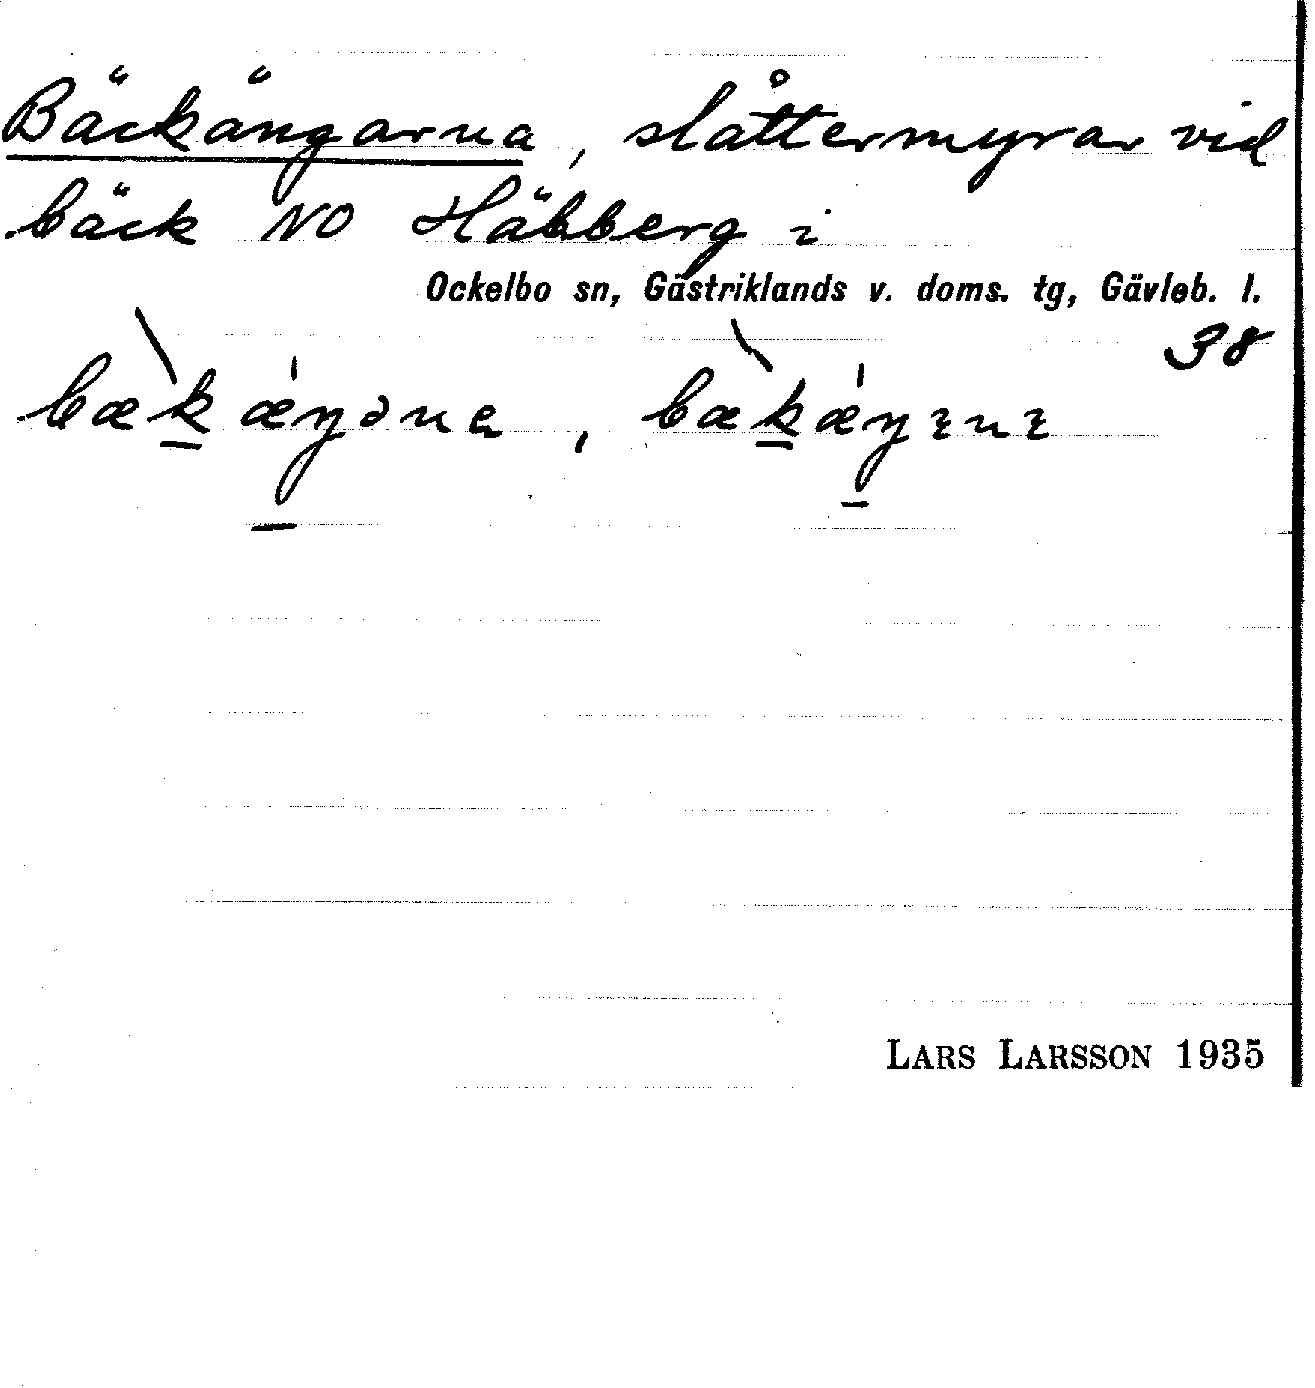 Bäckängarna, slåttermyrar vid
bäck NO Häbberg i
Ockelbo sn, Gästriklands v. doms. tg, Gävleb. l.
38
LARS LARSSON 1935